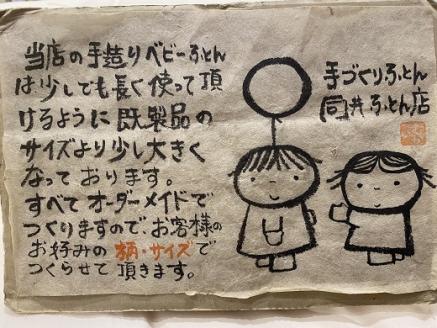 当店の手造りベビーふとん
は少しでも長く使って頂
けるように既製品の
サイズより少し大きく
なっております。
すべてオーダーメイドで
つくりますのでお客様の
お好みの柄・サイズで
つくらせて頂きます。
手づくりふとん
向井ふとん店